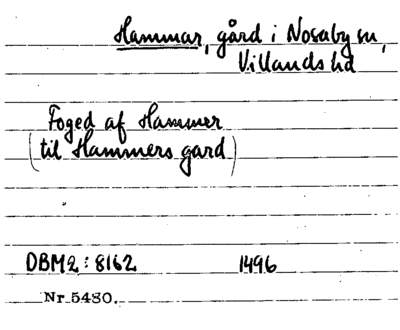 Hammar, gård i Nosaby sn,
Villands hd
Foged af Hammer
(til Hammers gard)
DBM2:8162 1496
Nr 5480.